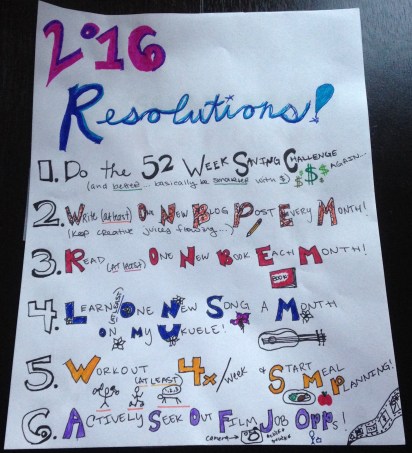 2016
Resolutions!
1. Do the 52 Week Saving Challenge again...
(and better... basically be smarter with $) $ $ $
2. Write (at least) One New Blog Post Every Month!
(keep creative juices flowing...)
3. Read (at least) One New Book Each Month!
BOOK
4. Learn (at least) One New Song A Month
on my Ukulele!
5. Workout (at least) 4x/week & Start Meal Planning!
6. Actively Seek Out Film Job Opps!
camera→